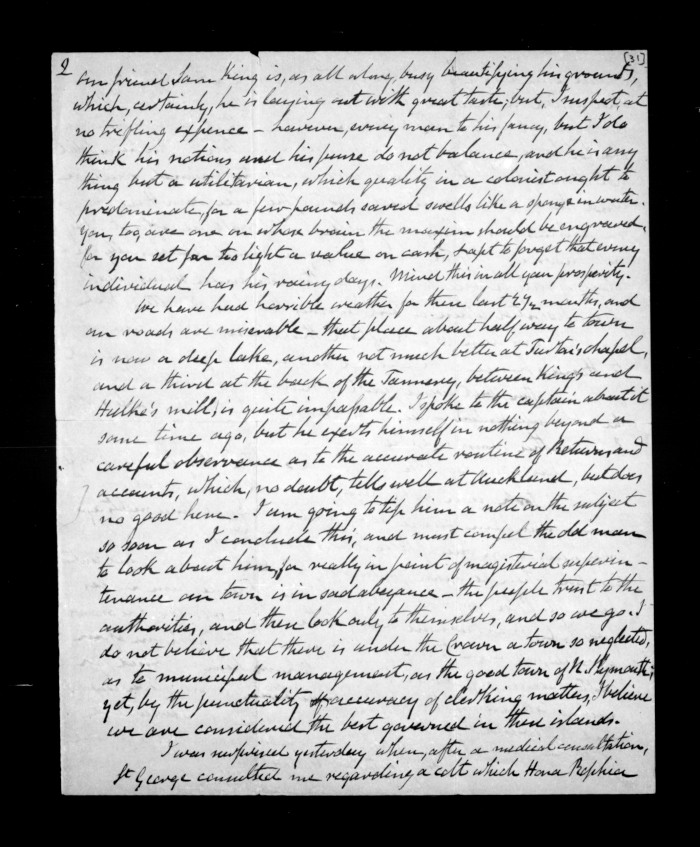 2 [31]
our friend Sam King is, as all along, busy beautifying his grounds,
which, certainly, he is laying out with great taste; but, I suspect, at
no trifling expence – however, every man to his fancy, but I do
think his notions and his purse do not balance, and he is any
thing but a utilitarian, which quality in a colonist ought to
predominate, for a few pounds saved swells like a sponge in water.
You, too, are one on whose brain the maxim should be engraved,
for you set far too light a value on cash, & apt to forget that every
individual has his rainy days. Mind this in all your prosperity.
We have had horrible weather for these last 2½ months, and
our roads are miserable – that place about half way to town
is now a deep lake, another not much better at Turton's chapel,
and a third at the back of the Tannery, between King's and
Hulke's mill, is quite impassable. I spoke to the captain about it
some time ago, but he exerts himself in nothing beyond a
careful observance as to the accurate routine of Returns and
accounts, which, no doubt, tells well at Auckland, but does
no good here. I am going to tip him a note on the subject
so soon as I conclude this, and must compel the old man
to look about him, for really in point of magisterial superin-
tenance our town is in sad abeyance – the people trust to the
authorities, and then look only to themselves, and so we go. I
do not believe that there is under the Crown a town so neglected,
as to municipal management, as the good town of N. Plymouth;
yet, by the punctuality & accuracy of clerking matters, I believe
we are considered the best governed in these islands.
I was surprised yesterday when, after a medical consultation,
St George consulted me regarding a colt which Hona